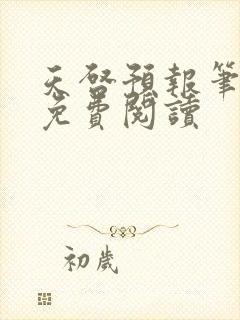 天啓預報筆
免費閱讀
初歲